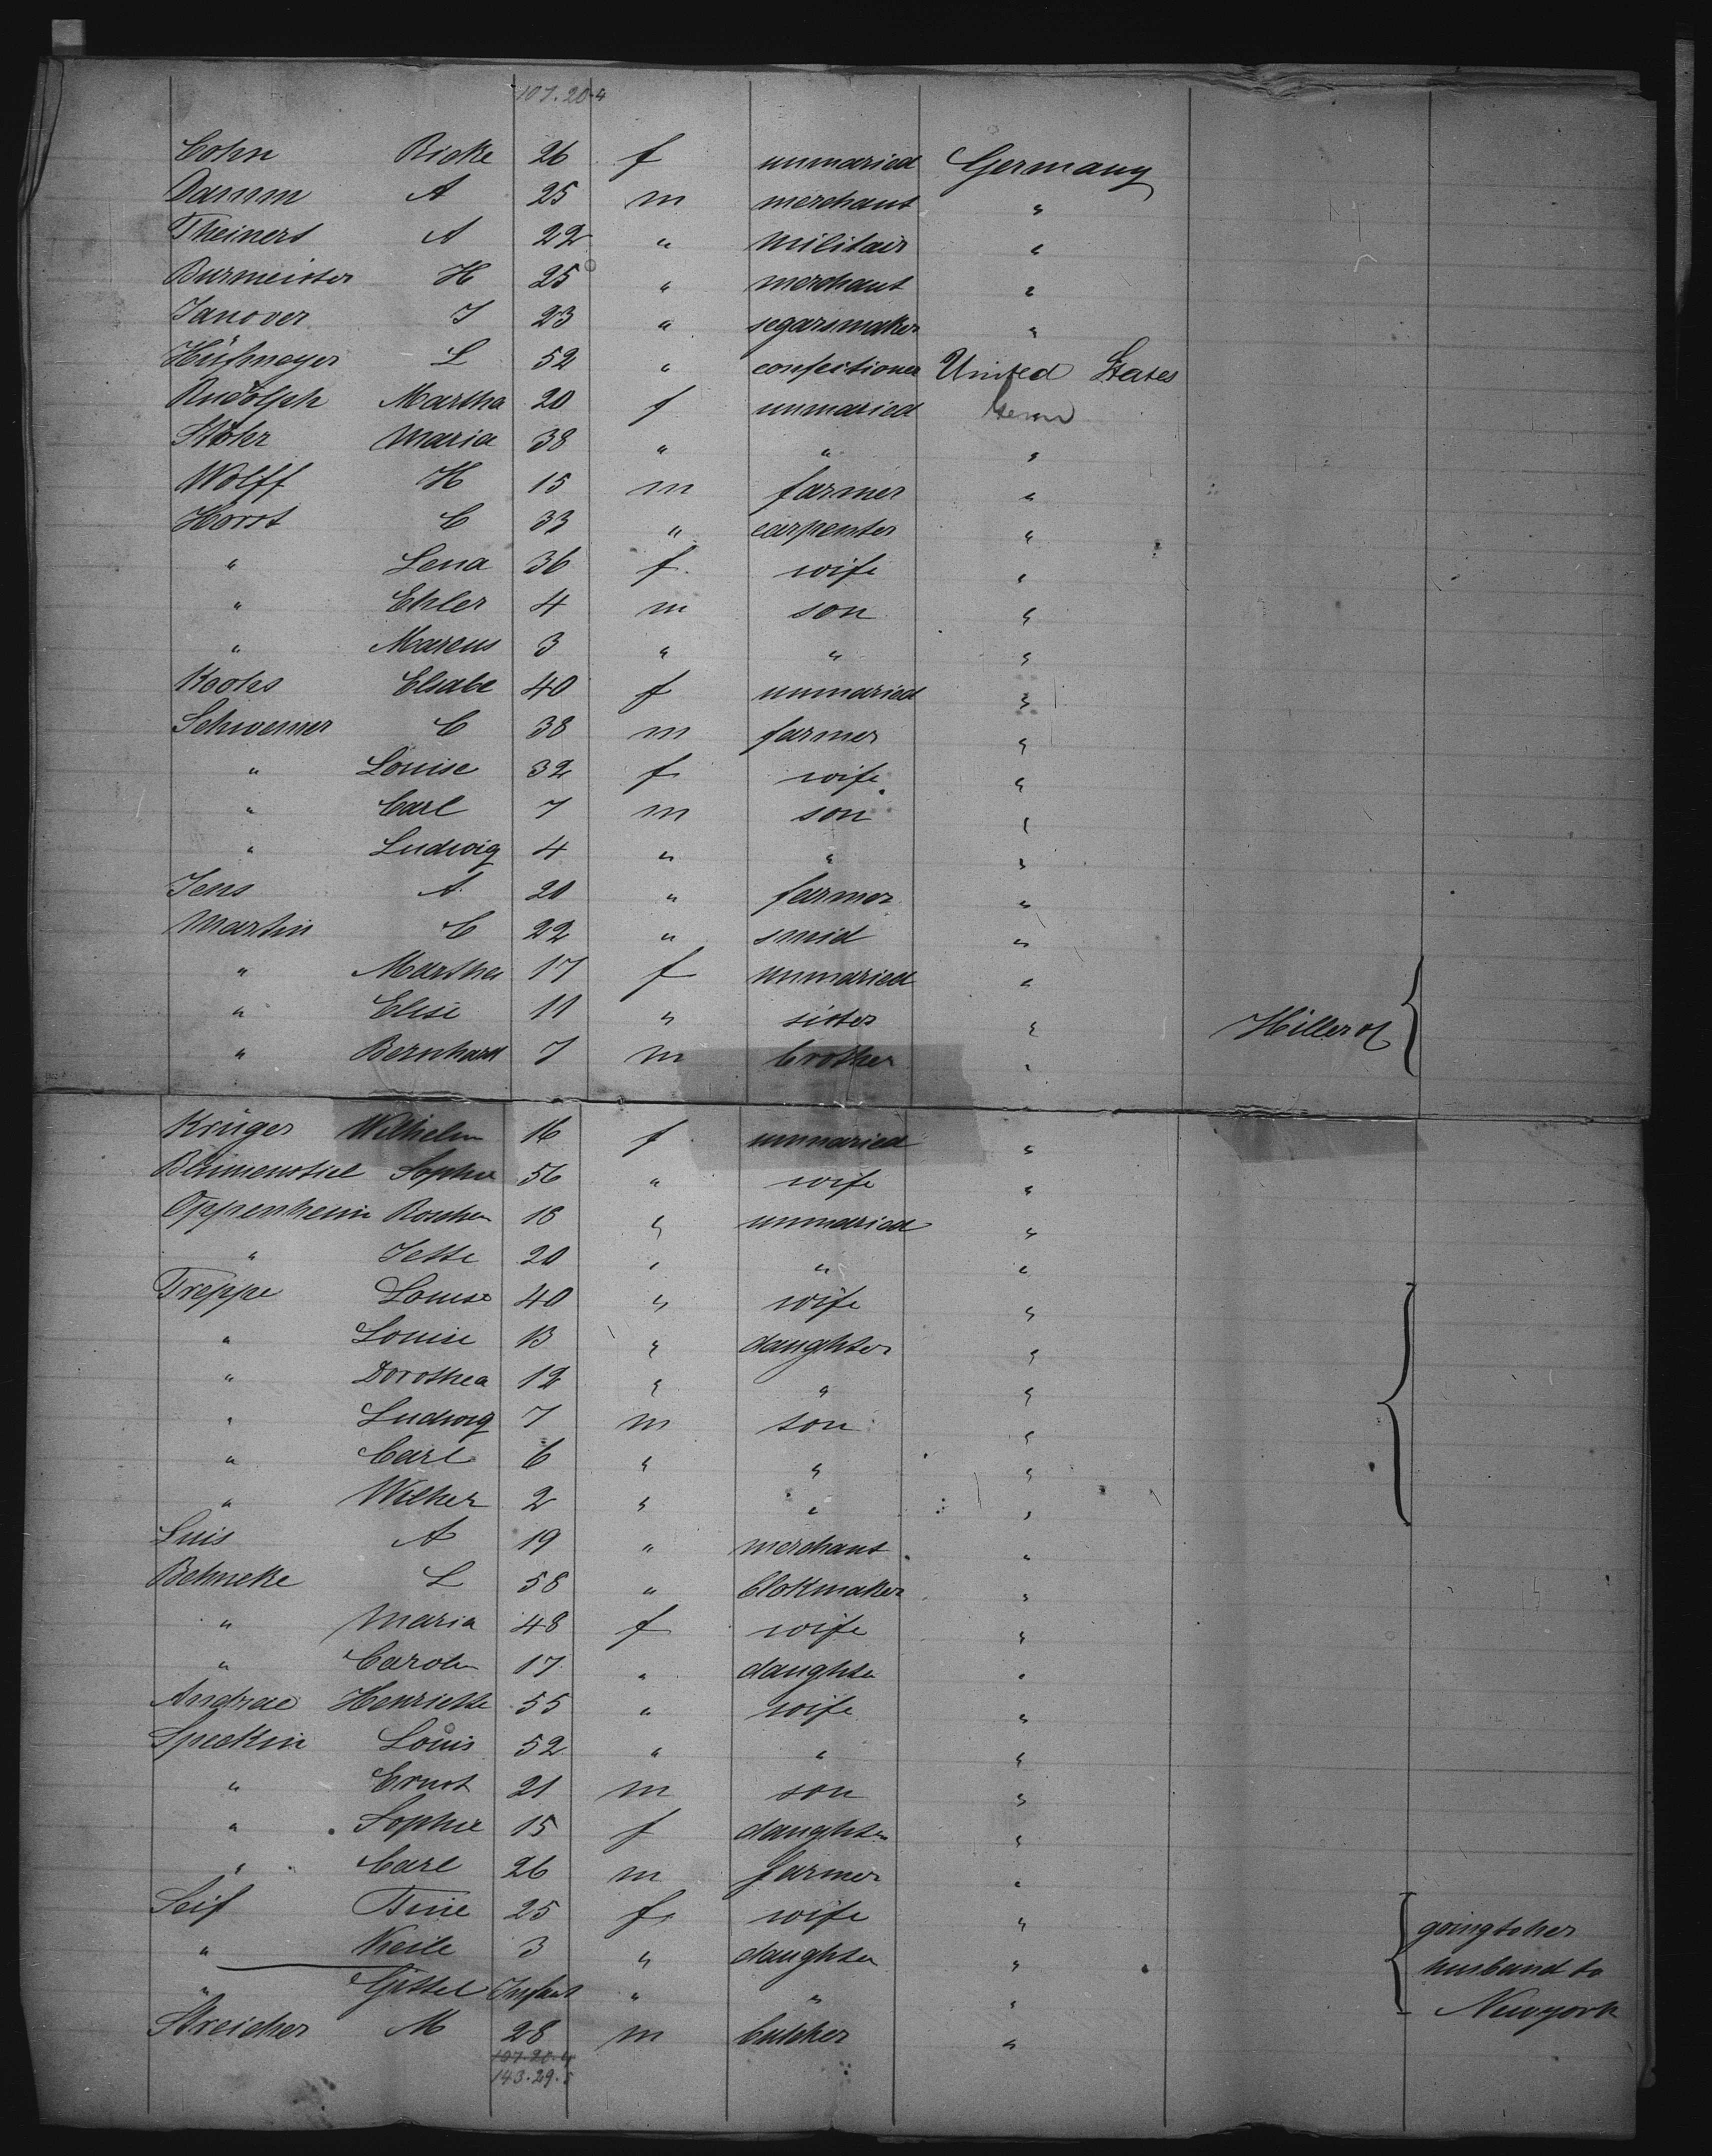 107.20.4
Cohn Ricke 26 f unmaried Germany
Damm A 25 m merchant "
Theinert A 22 " militair "
Burmeister H 25 " merchant "
Janover J 23 " segarsmaker "
Hüfmeyer L 52 " confectioner United States
Rudolph Martha 20 f unmaried Germ
Stöhr Maria 38 " " "
Wolff H 15 m farmer "
Horst C 33 " carpenter "
" Lena 36 f wife "
" Ehler 4 m son "
" Marcus 3 " " "
Koohs Elsabe 40 f unmaried "
Schwemer C 38 m farmer "
" Louise 32 f wife "
" Carl 7 m son "
" Ludwig 4 " " "
Jens A 20 " farmer "
Martin C 22 " smid "
" Martha 17 f unmaried "
" Elise 11 " sister "
" Bernhard 7 m brother "
Krüger Wilhelm 16 f unmaried "
Blumenstiel Sophie 56 " wife "
Oppenheim Roschen 18 " unmaried "
" Jette 20 " " "
Treppe Louise 40 " wife "
" Louise 13 " daughter "
" Dorothea 12 " " "
" Ludwig 7 m son "
" Carl 6 " " "
" 2 " " "
Luis A 19 " merchant "
Behncke L 58 " blokmaker "
" Maria 48 f wife "
" Carolin 17 " daughter "
Andrae Henriette 55 " wife "
Speckin Louis 52 " " "
" Ernst 21 m son "
" Sophie 15 f daughter "
" Carl 26 m farmer "
Seif Tine 25 f wife " going to her
" Keile 3 " daughter " husband to
" Gittel Infant " " " Newyork
Streicher M 28 m butcher "
107.20.4
143.29.5